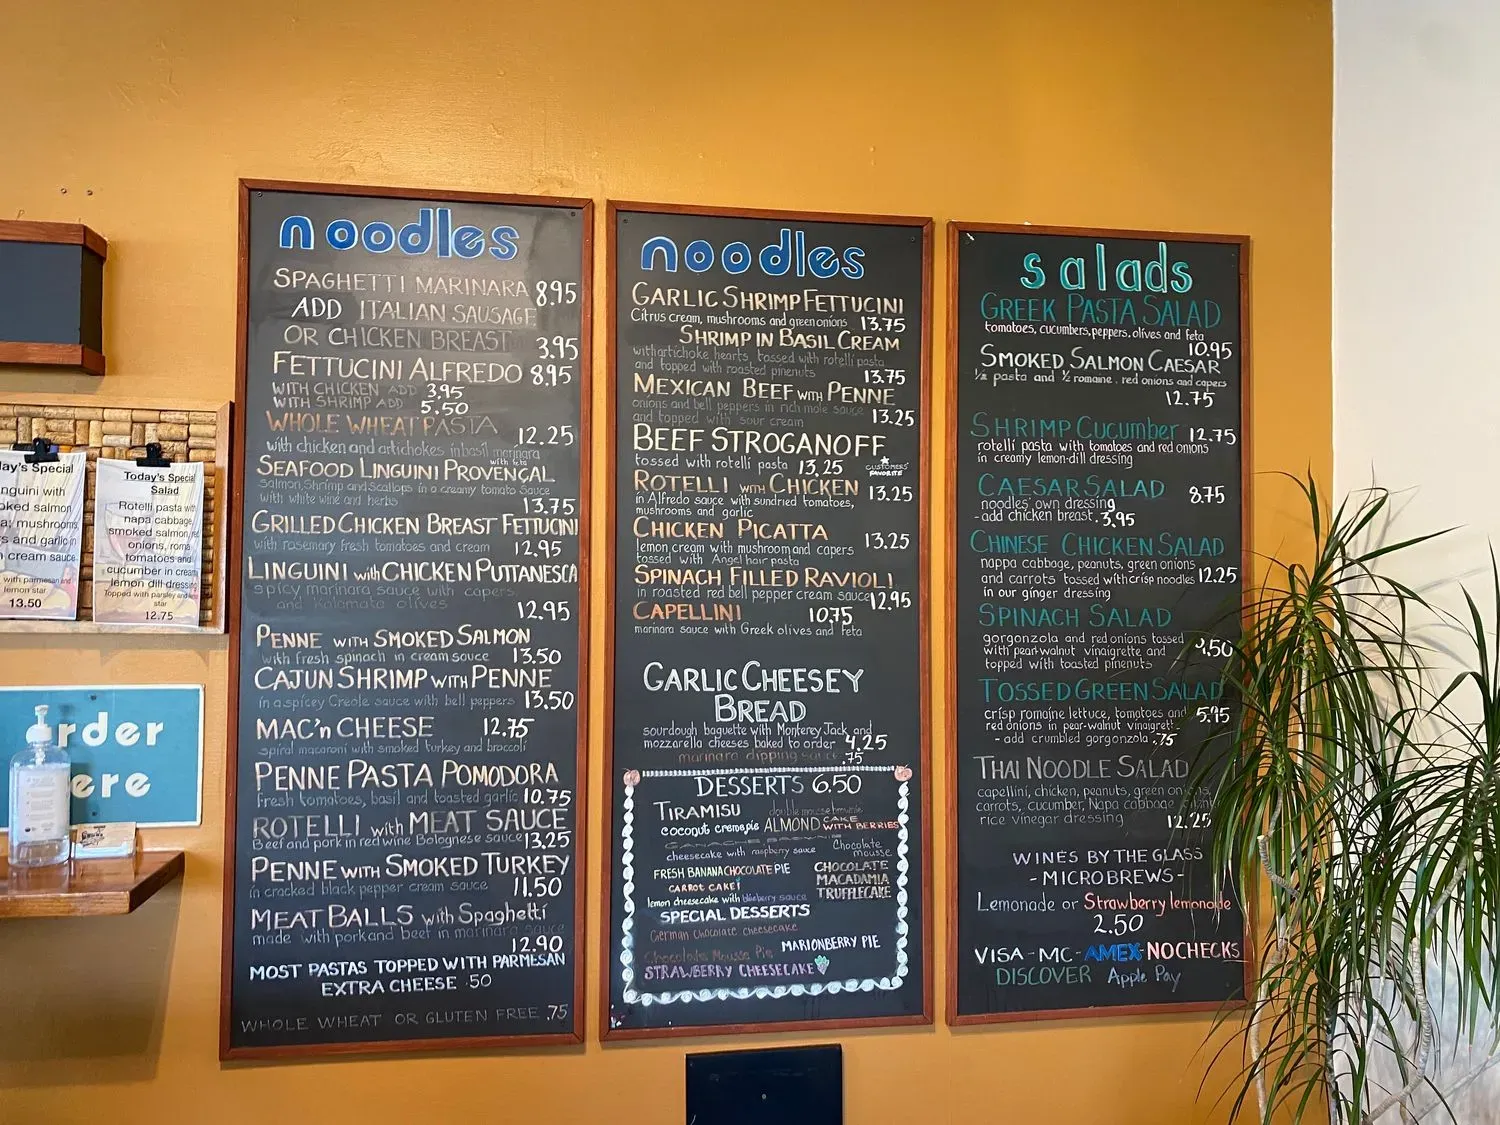 ay's Special
nguini with
oked salmon
a, mushrooms
s and garlic in
n cream sauce
with parmesan and
lemon star
13.50
Today's Special
Salad
Rotelli pasta with
napa cabbage,
smoked salmon, red
onions, roma
tomatoes and
cucumber in cream
lemon dill dressing
Topped with parsley and
star
12.75
rder
ere
noodles
SPAGHETTI MARINARA 8.95
ADD ITALIAN SAUSAGE
OR CHICKEN BREAST 3.95
FETTUCINI ALFREDO 8.95
WITH CHICKEN ADD 3.95
WITH SHRIMP ADD 5.50
WHOLE WHEAT PASTA 12.25
with chicken and artichokes in basil marinara
with feta
SEAFOOD LINGUINI PROVENÇAL
Salmon, Shrimp and Scallops in a creamy tomato sauce
with white wine and herbs 13.75
GRILLED CHICKEN BREAST FETTUCINI
with rosemary fresh tomatoes and cream 12.95
LINGUINI with CHICKEN PUTTANESCA
spicy marinara sauce with capers
and kalamata olives 12.95
PENNE WITH SMOKED SALMON
with fresh spinach in cream sauce 13.50
CAJUN SHRIMP WITH PENNE
in a spicey Creole sauce with bell peppers 13.50
MAC'n CHEESE 12.75
spiral macaroni with smoked turkey and broccoli
PENNE PASTA POMODORA
Fresh tomatoes, basil and toasted garlic 10.75
ROTELLI with MEAT SAUCE
Beef and pork in red wine Bolognese sauce 13.25
PENNE WITH SMOKED TURKEY
in cracked black pepper cream sauce 11.50
MEAT BALLS with Spaghetti
made with pork and beef in marinara sauce
12.90
MOST PASTAS TOPPED WITH PARMESAN
EXTRA CHEESE .50
WHOLE WHEAT OR GLUTEN FREE .75
noodles
GARLIC SHRIMP FETTUCINI
Citrus cream, mushrooms and green onions 13.75
SHRIMP IN BASIL CREAM
with artichoke hearts, tossed with rotelli pasta
and topped with roasted pinenuts 13.75
MEXICAN BEEF WITH PENNE
onions and bell peppers in rich mole sauce
and topped with sour cream 13.25
BEEF STROGANOFF
tossed with rotelli pasta 13.25 CUSTOMERS'
FAVORITE
ROTELLI WITH CHICKEN
in Alfredo sauce with sundried tomatoes, 13.25
mushrooms and garlic
CHICKEN PICATTA
lemon cream with mushroom and capers 13.25
tossed with Angel hair pasta
SPINACH FILLED RAVIOLI
in roasted red bell pepper cream sauce 12.95
CAPELLINI 10.75
marinara sauce with Greek olives and feta
GARLIC CHEESEY
BREAD
sourdough baguette with Monterey Jack and
mozzarella cheeses baked to order 4.25
marinara dipping sauce .75
DESSERTS 6.50
TIRAMISU double mousse brownie
coconut creme pie ALMOND CAKE
WITH BERRIES
cheesecake with raspberry sauce Chocolate
mousse
FRESH BANANA CHOCOLATE PIE
CARROT CAKE!
CHOCOLATE
MACADAMIA
TRUFFLE CAKE
lemon cheesecake with blueberry sauce
SPECIAL DESSERTS
German Chocolate cheesecake
Chocolate Mousse Pie MARIONBERRY PIE
STRAWBERRY CHEESECAKE
salads
GREEK PASTA SALAD
tomatoes, cucumbers, peppers, olives and feta
10.95
SMOKED SALMON CAESAR
½ pasta and ½ romaine, red onions and capers
12.75
SHRIMP Cucumber 12.75
rotelli pasta with tomatoes and red onions
in creamy lemon-dill dressing
CAESAR SALAD 8.75
noodles' own dressing
- add chicken breast 3.95
CHINESE CHICKEN SALAD
nappa cabbage, peanuts, green onions
and carrots tossed with crisp noodles 12.25
in our ginger dressing
SPINACH SALAD
gorgonzola and red onions tossed 9.50
with pear-walnut vinaigrette and
topped with toasted pinenuts
TOSSED GREEN SALAD
crisp romaine lettuce, tomatoes and 5.95
red onions in pear-walnut vinaigrett
- add crumbled gorgonzola .75
THAI NOODLE SALAD
capellini, chicken, peanuts, green onions,
carrots, cucumber, Napa cabbage
rice vinegar dressing 12.25
WINES BY THE GLASS
- MICROBREWS -
Lemonade or Strawberry lemonade
2.50
VISA - MC - AMEX - NO CHECKS
DISCOVER Apple Pay